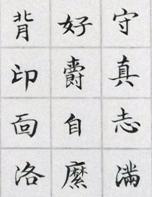 守真志滿
好爵自縻
背邙面洛